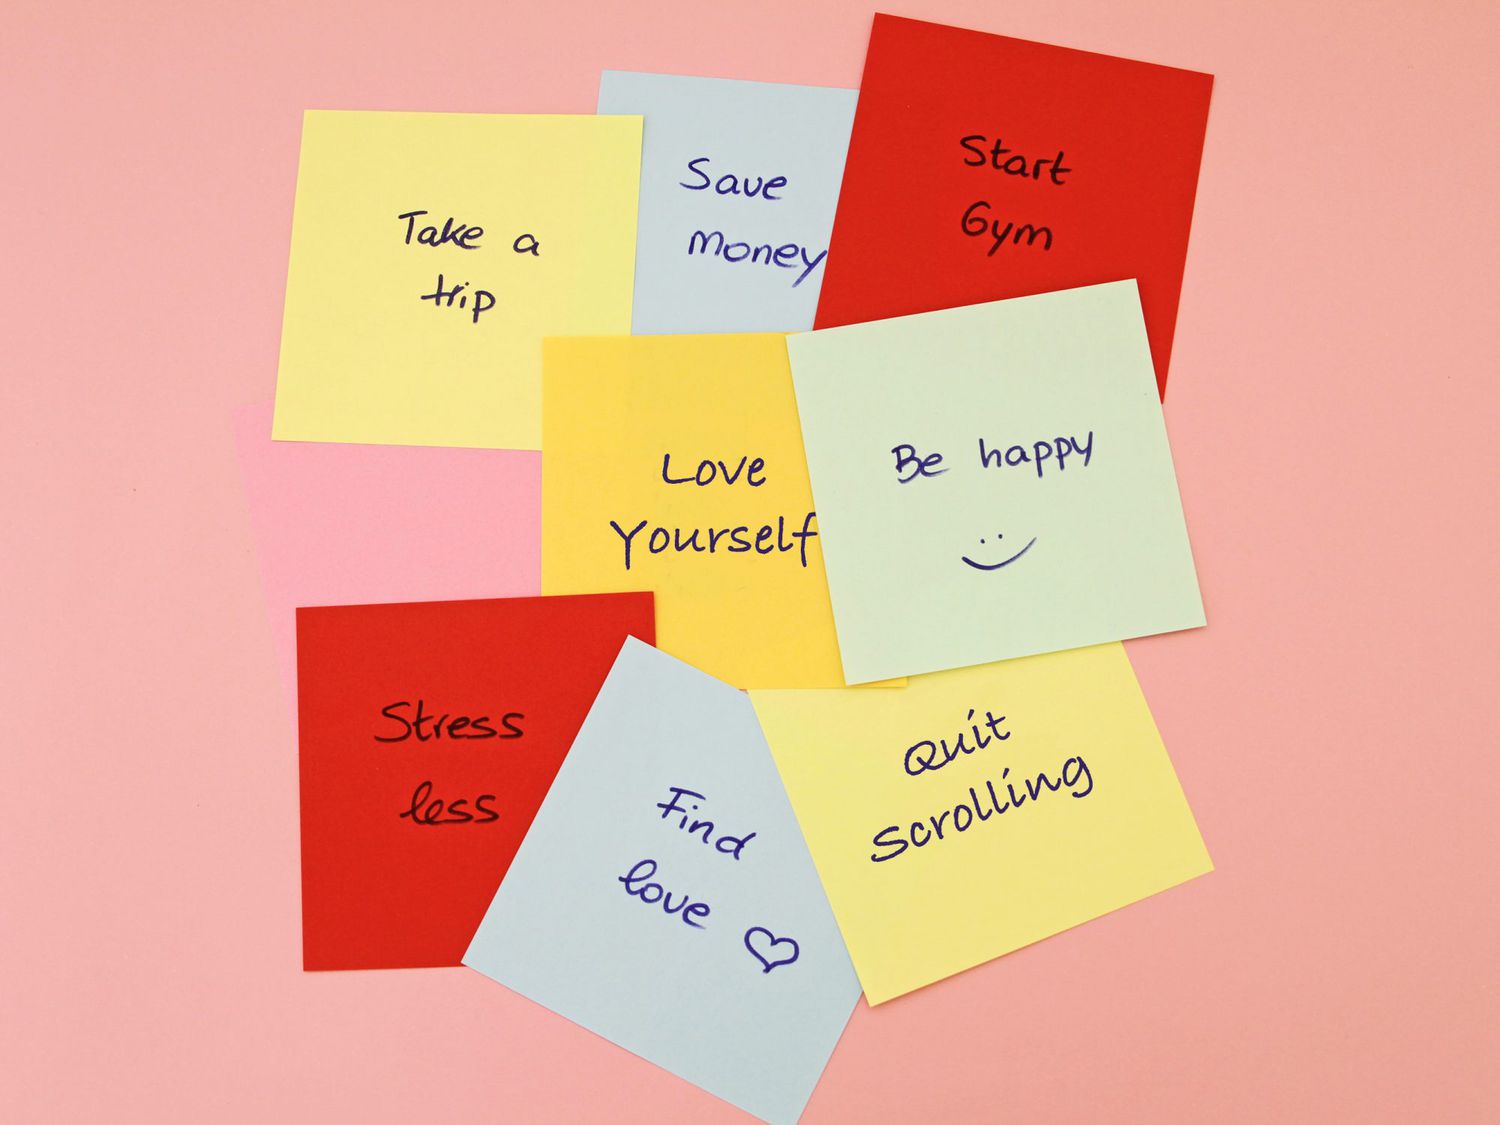 Take a
trip
Save
money
Start
Gym
Love
Yourself
Be happy
Stress
less
Find
love
Quit
scrolling